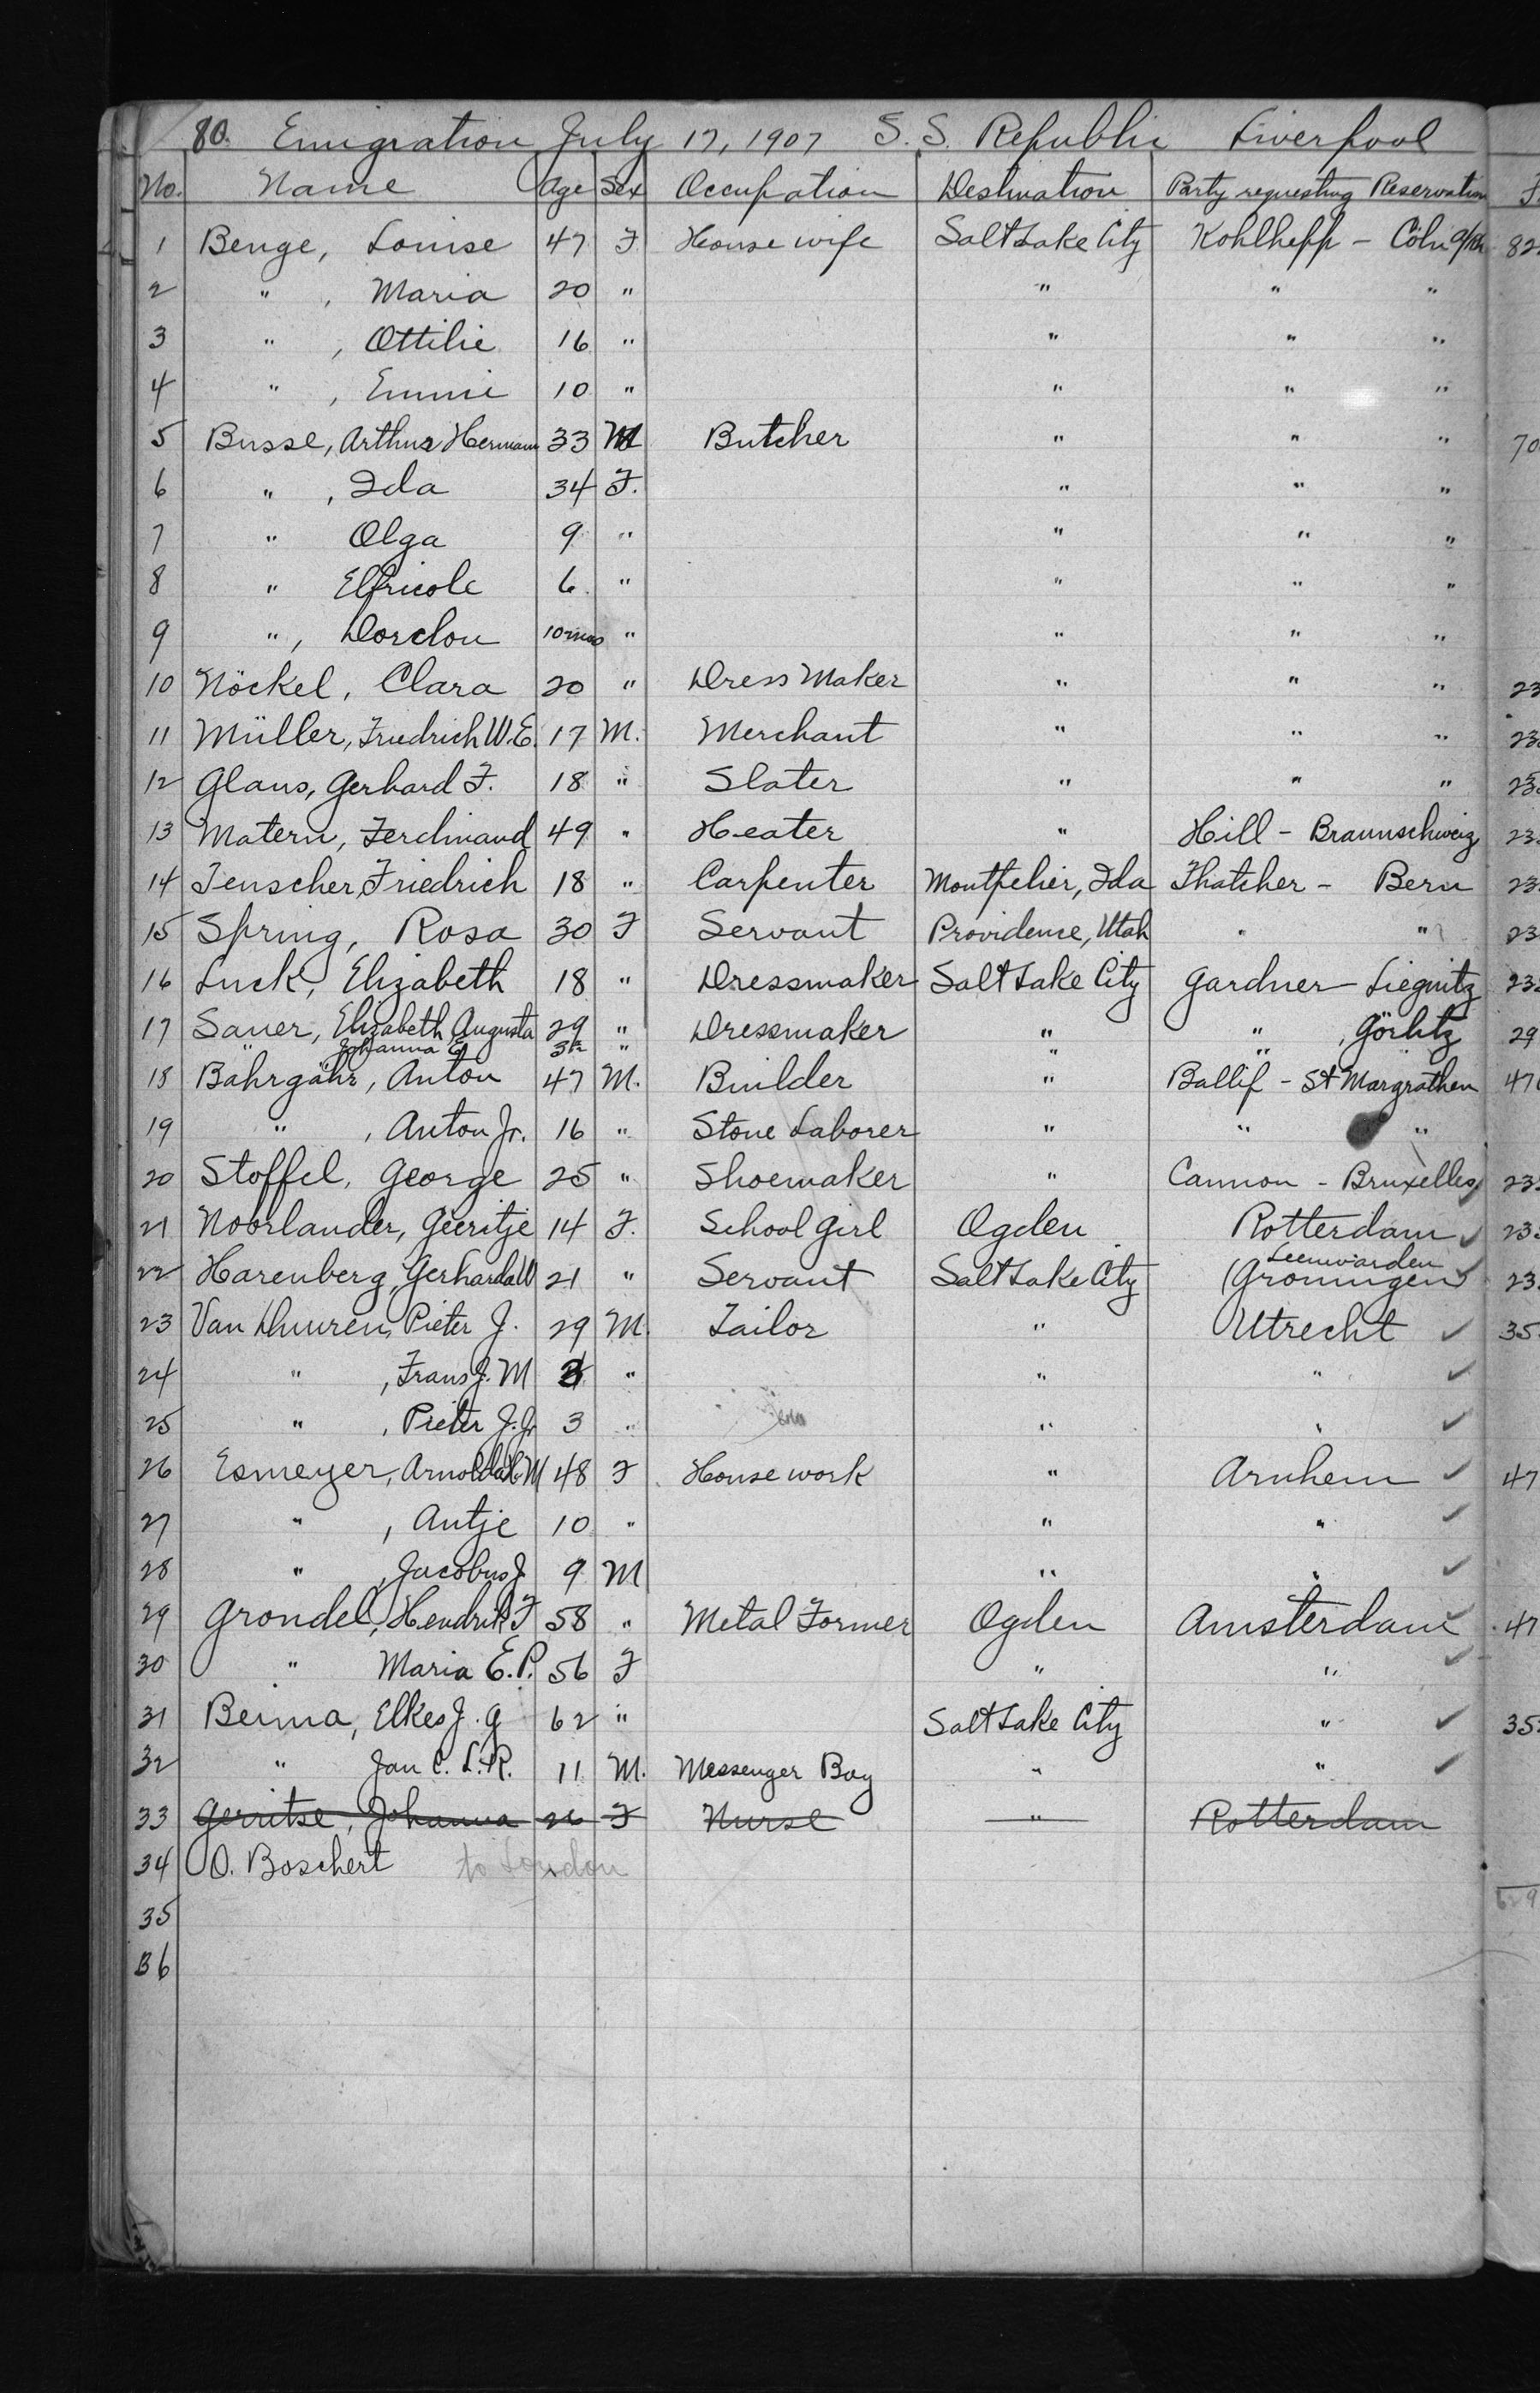 80. Emigration July 17, 1907 S.S. Republic Liverpool
No. Name Age Sex Occupation Destination Party requesting Reservation
1 Benge, Louise 47 F House wife Salt Lake City Kohlhepp - Cöln a/Rh 82
2 " , Maria 20 " " " "
3 " , Ottilie 16 " " " "
4 " , Emmi 10 " " " "
5 Busse, Arthur Hermann 33 M Butcher " " " 70
6 " , Ida 34 F. " " "
7 " Olga 9 " " " "
8 " Elfriede 6 " " " "
9 " , 10 mos " " " "
10 Nöckel, Clara 20 " Dress Maker " " " 23
11 Müller, Friedrich W.E. 17 M. Merchant " " " 23
12 Glaus, Gerhard F. 18 " Slater " " " 23
13 Matern, Ferdinand 49 " Heater " Hill - Braunschweig 23
14 Tenscher, Friedrich 18 " Carpenter Montpelier, Ida Thatcher - Bern 23
15 Spring, Rosa 30 F Servant Providence, Utah " " 23
16 Luck, Elizabeth 18 " Dressmaker Salt Lake City Gardner - Liegnitz 23
17 Sauer, Elizabeth Augusta 29 " Dressmaker " " , Görlitz 29
" Johanna E " " " "
18 Bahrgähr, Anton 47 M. Builder " Ballif - St Margrathen 47
19 " , Anton Jr. 16 " Stone Laborer " " "
20 Stoffel, George 25 " Shoemaker " Cannon - Bruxelles 23
21 Noorlander, Geeritje 14 F. School girl Ogden Rotterdam ✓ 23
Leenwarden
22 Harenberg, Gerharda W 21 " Servant Salt Lake City (Groningen) ✓ 23
23 Van Duuren, Pieter J. 29 M. Tailor " Utrecht ✓ 35
24 " , Frans J. M " " " ✓
25 " , Pieter J. Jr 3 " " " ✓
26 Esmeyer, Arnolda H. M 48 F House work " Arnhem ✓ 47
27 " , Antje 10 " " " ✓
28 " , Jacobus J 9 M " " ✓
29 Grondel, Hendrik F 58 " Metal Former Ogden Amsterdam ✓ 47
30 " Maria E. P. 56 F " " ✓
31 Beima, Elkes J. G 62 " Salt Lake City " ✓ 35
32 " Jan C. L. R. 11 M. Messenger Boy " " ✓
33 Gerritse, Johanna 26 F Nurse " Rotterdam
34 O. Boschert to London
35
36